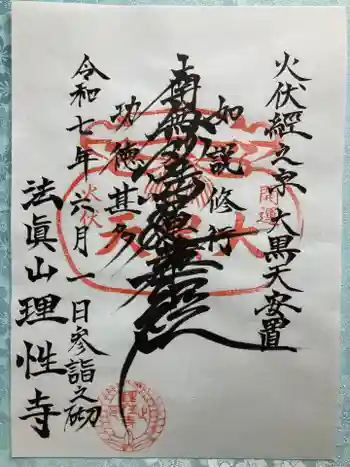 火伏経之字大黒天安置
如説修行
南無妙法蓮華経
功徳甚多
令和七年六月一日参詣之砌
法眞山理性寺
開運
火伏
大黒天